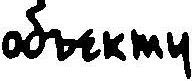 объекту